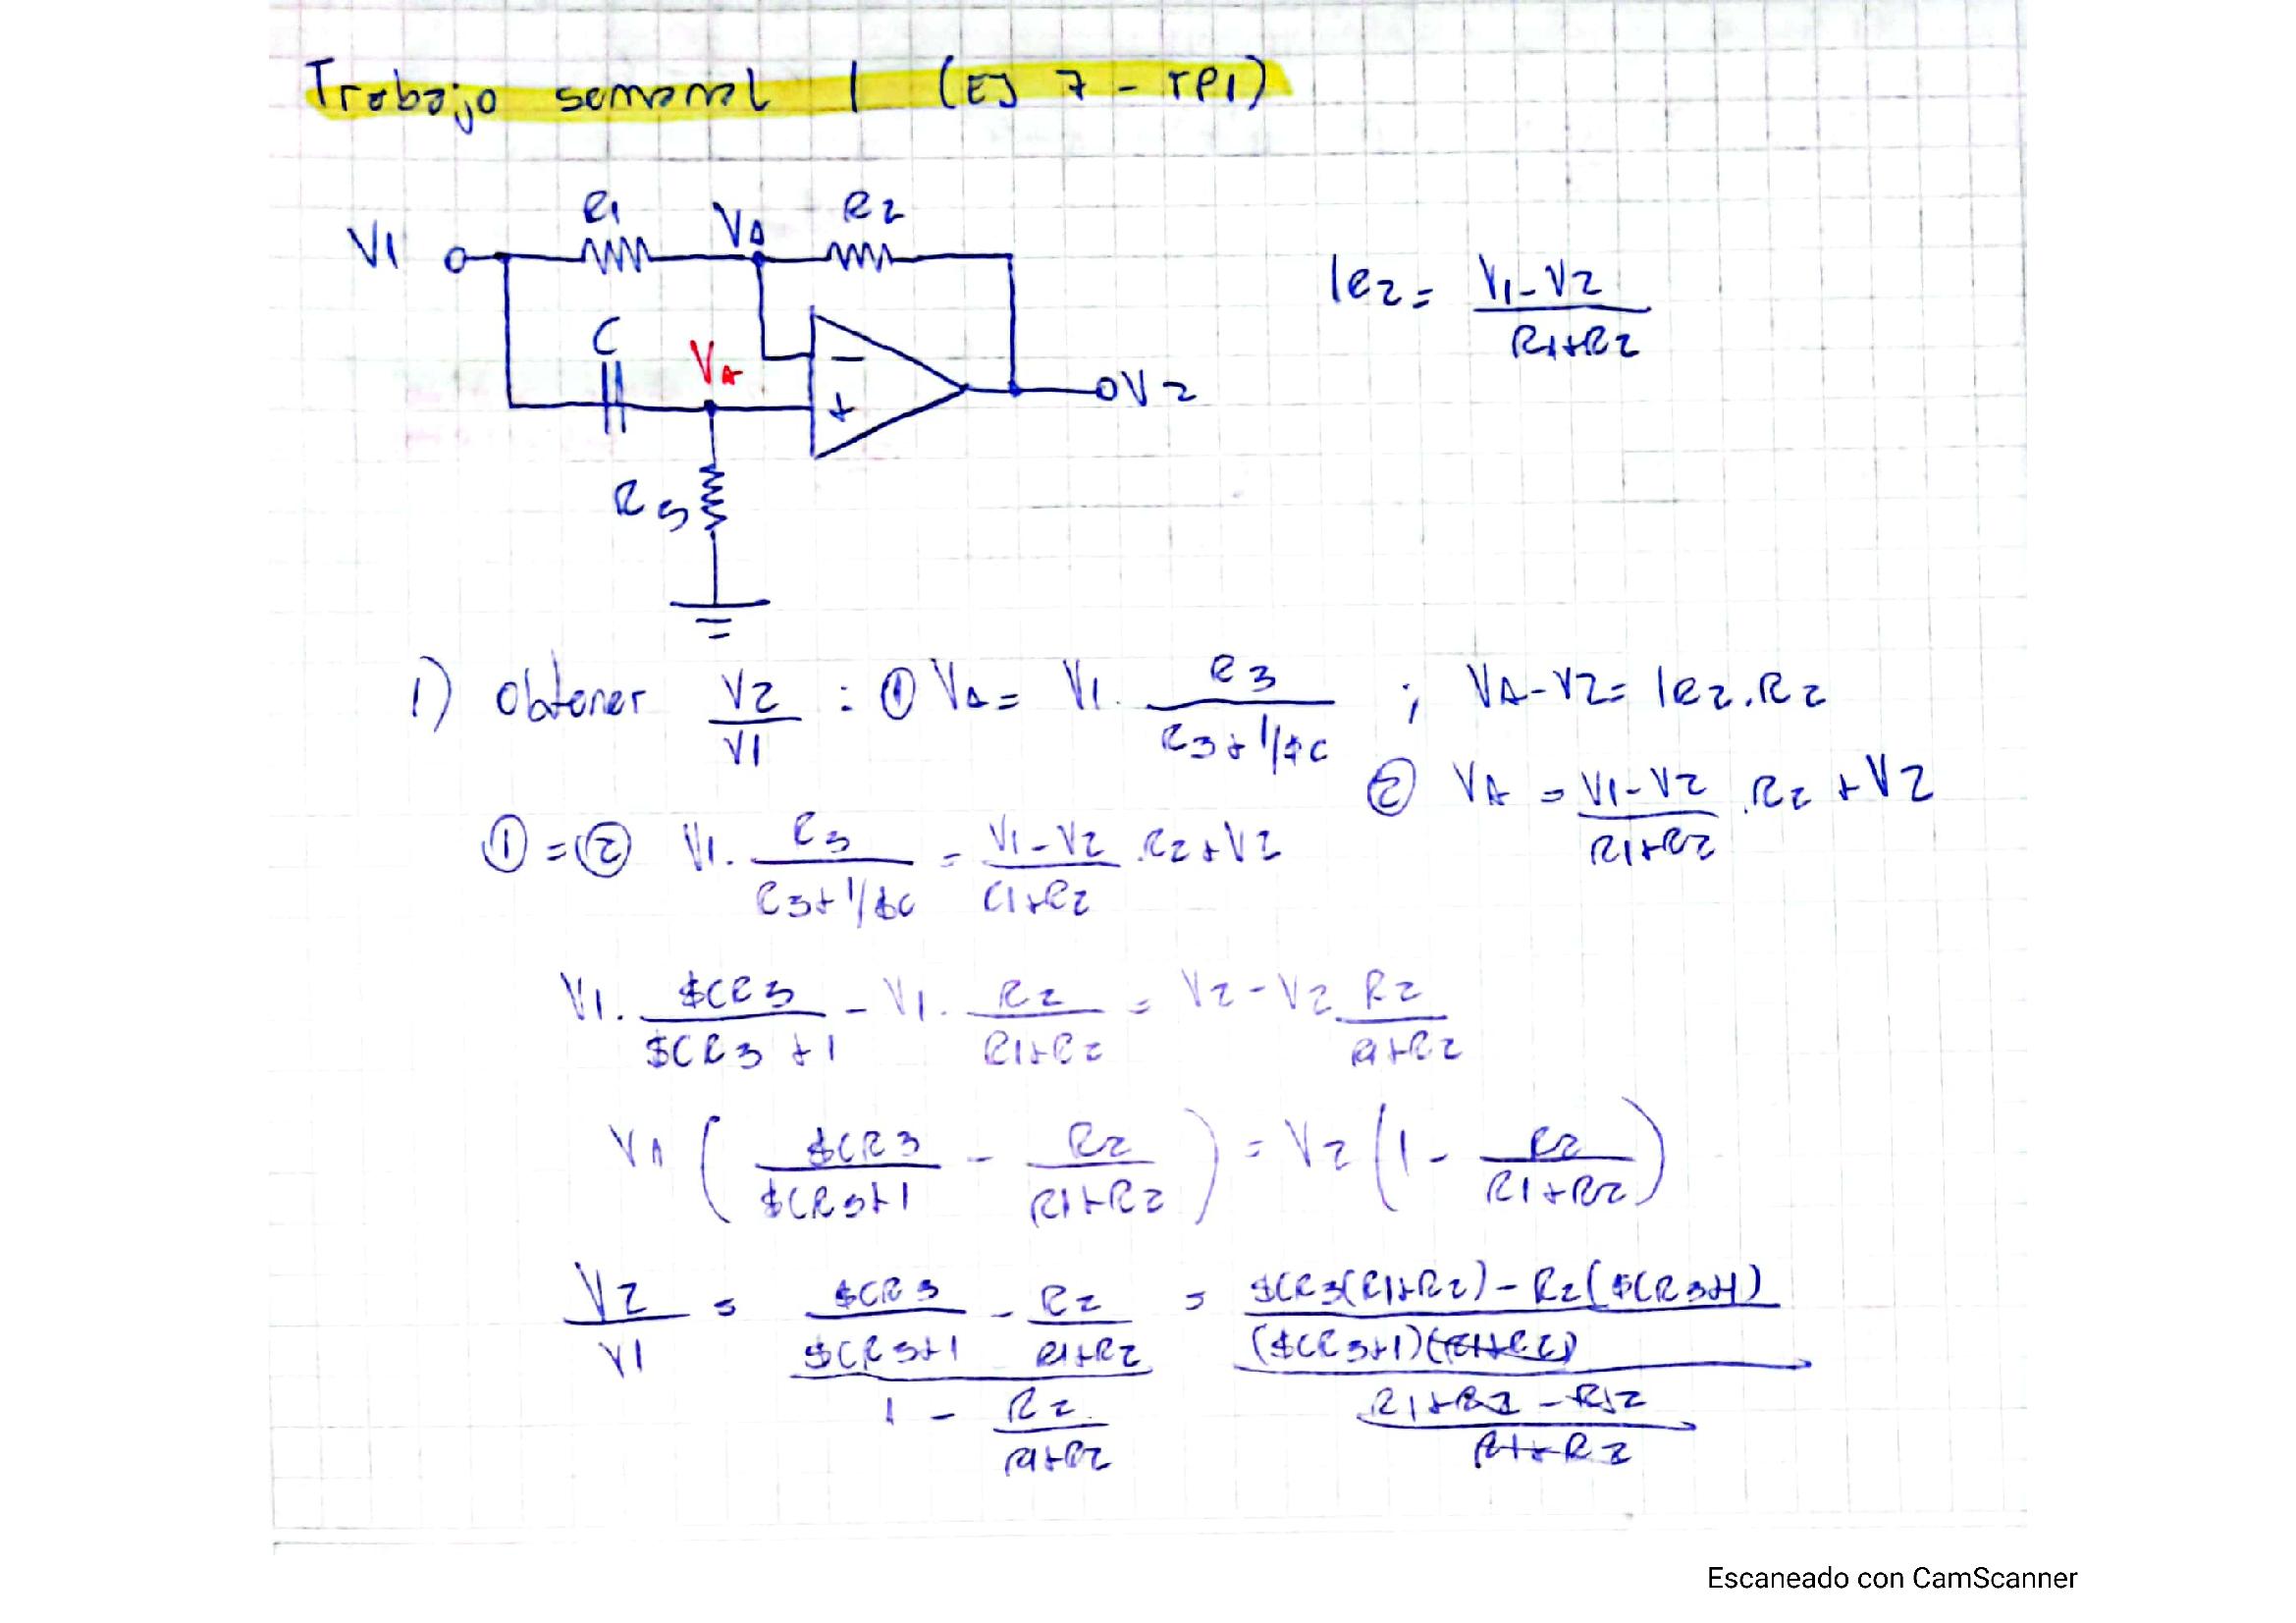 Trabajo semanal 1 (EJ 7 - TP1)
R1 VA R2
V1
IR2 = (V1 - V2)/(R1+R2)
C VA
-
+ V2
R3
1) Obtener V2/V1 : ① VA = V1 . R3/(R3 + 1/$C) ; VA - V2 = IR2 . R2
② VA = (V1 - V2)/(R1+R2) . R2 + V2
① = ② V1 . R3/(R3 + 1/$C) = (V1 - V2)/(R1+R2) . R2 + V2
V1 . $CR3/($CR3 + 1) - V1 . R2/(R1+R2) = V2 - V2 . R2/(R1+R2)
V1 ($CR3/($CR3+1) - R2/(R1+R2)) = V2 (1 - R2/(R1+R2))
V2/V1 = ($CR3/($CR3+1) - R2/(R1+R2))/(1 - R2/(R1+R2)) = (($CR3(R1+R2) - R2($CR3+1))/(($CR3+1)(R1+R2)))/((R1+R2 - R2)/(R1+R2))
Escaneado con CamScanner